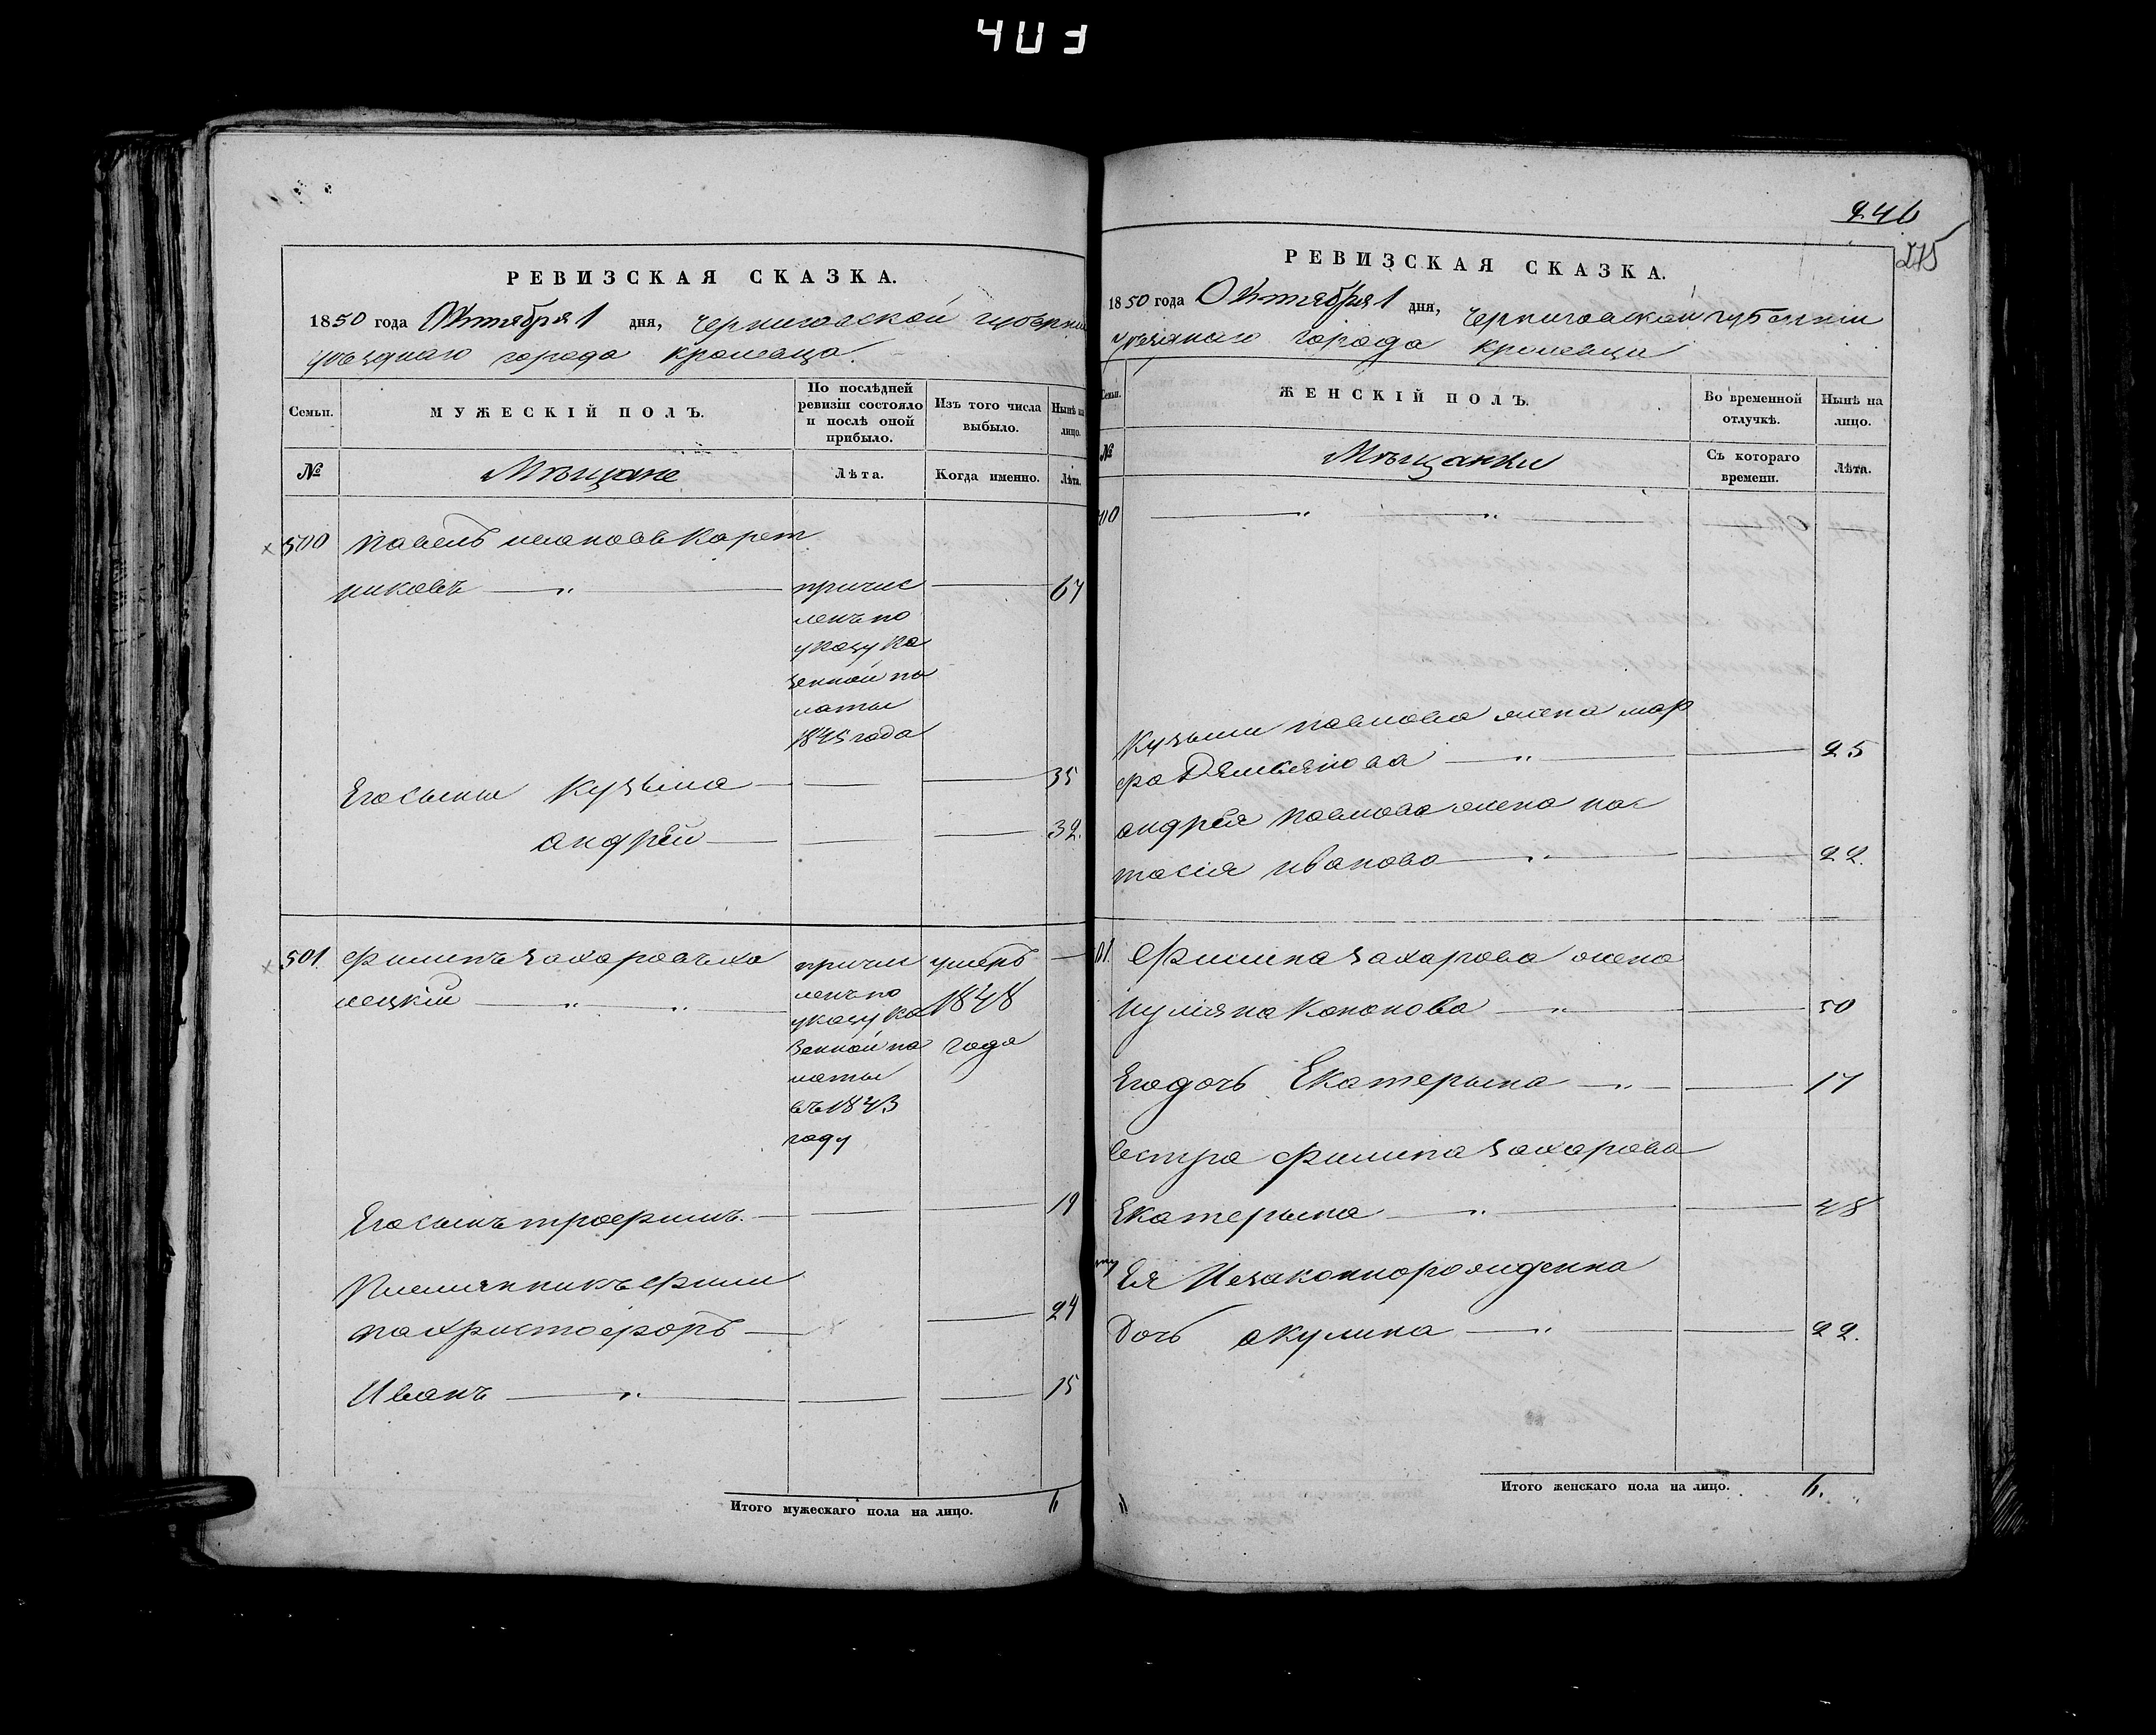 403
РЕВИЗСКАЯ СКАЗКА.
1850 года Октября 1 дня, Черниговской губерніи
уѣзднаго города Кролевца
Семьи.
МУЖЕСКІЙ ПОЛЪ.
По послѣдней
ревизіи состояло
и послѣ оной
прибыло.
Изъ того числа
выбыло.
Нынѣ на
лицо.
№
Мѣщане
Лѣта.
Когда именно.
Лѣта.
500 Павелъ Ивановъ Карет
никовъ 67
причис
ленъ по
указу Ка
зенной па
латы
1845 года
Его сыны Кузьма 35
Андрей 32.
501. Филипъ Захаровъ Ха
лецкій
причи
ленъ по
указу Ка
зенной па
латы
въ 1843
году
умеръ
1848
года
Его сынъ Трофимъ. 19
Племянникъ Фили
па Христофоръ 24
Иванъ 15
Итого мужескаго пола на лицо. 6
246
275
РЕВИЗСКАЯ СКАЗКА.
1850 года Октября 1 дня, Черниговской губерніи
уѣзднаго города Кролевца
Семьи.
ЖЕНСКІЙ ПОЛЪ.
Во временной
отлучкѣ.
Нынѣ на
лицо.
№
Мѣщанки
Съ котораго
времени.
Лѣта.
00
Кузьмы Павлова жена Мар
фа Демьянова 25
Андрея Павлова жена Нас
тасія Иванова 22.
01. Филипа Захарова жена
Иуліяна Кононова 50
Его дочь Екатерына 17
Сестра Филипа Захарова
Екатерына 48
Ея Незаконнорожденна
Дочь Акулина 22.
Итого женскаго пола на лицо. 6.